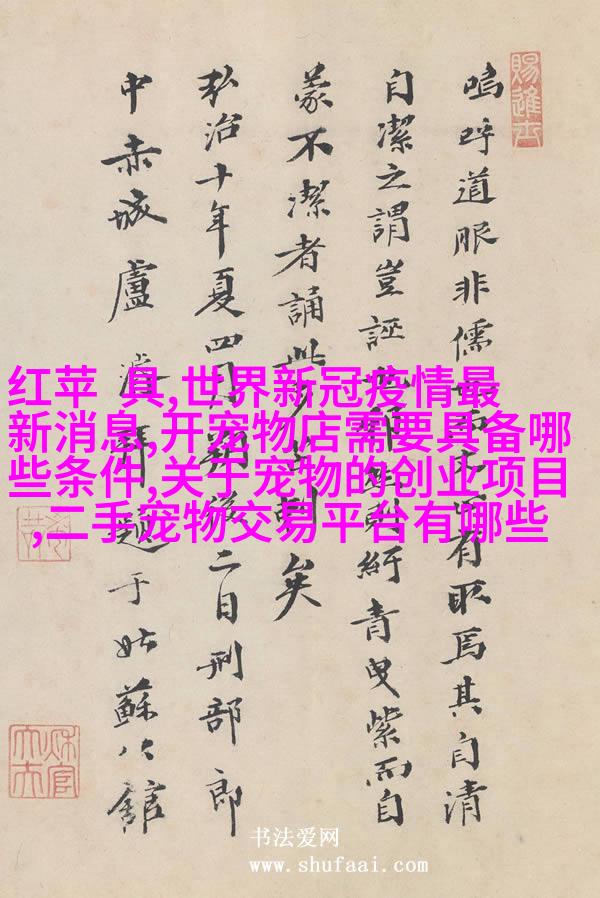 嗚呼道服非儒有取焉其自清
自潔之謂豈誣紆青曳紫而自
蒙不潔者誦此矣
弘治十年夏四月朔後二日刑部郎
中赤城盧濬拜題于姑蘇公館
賜進士
秋官大夫
红苹 具,世界新冠疫情最
新消息,开宠物店需要具备哪
些条件,关于宠物的创业项目
,二手宠物交易平台有哪些
书法爱网
www.shufaai.com